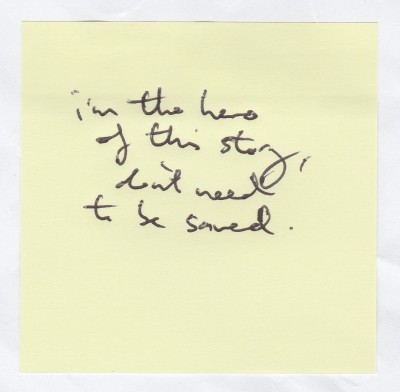 i'm the hero
of this story,
don't need
to be saved.